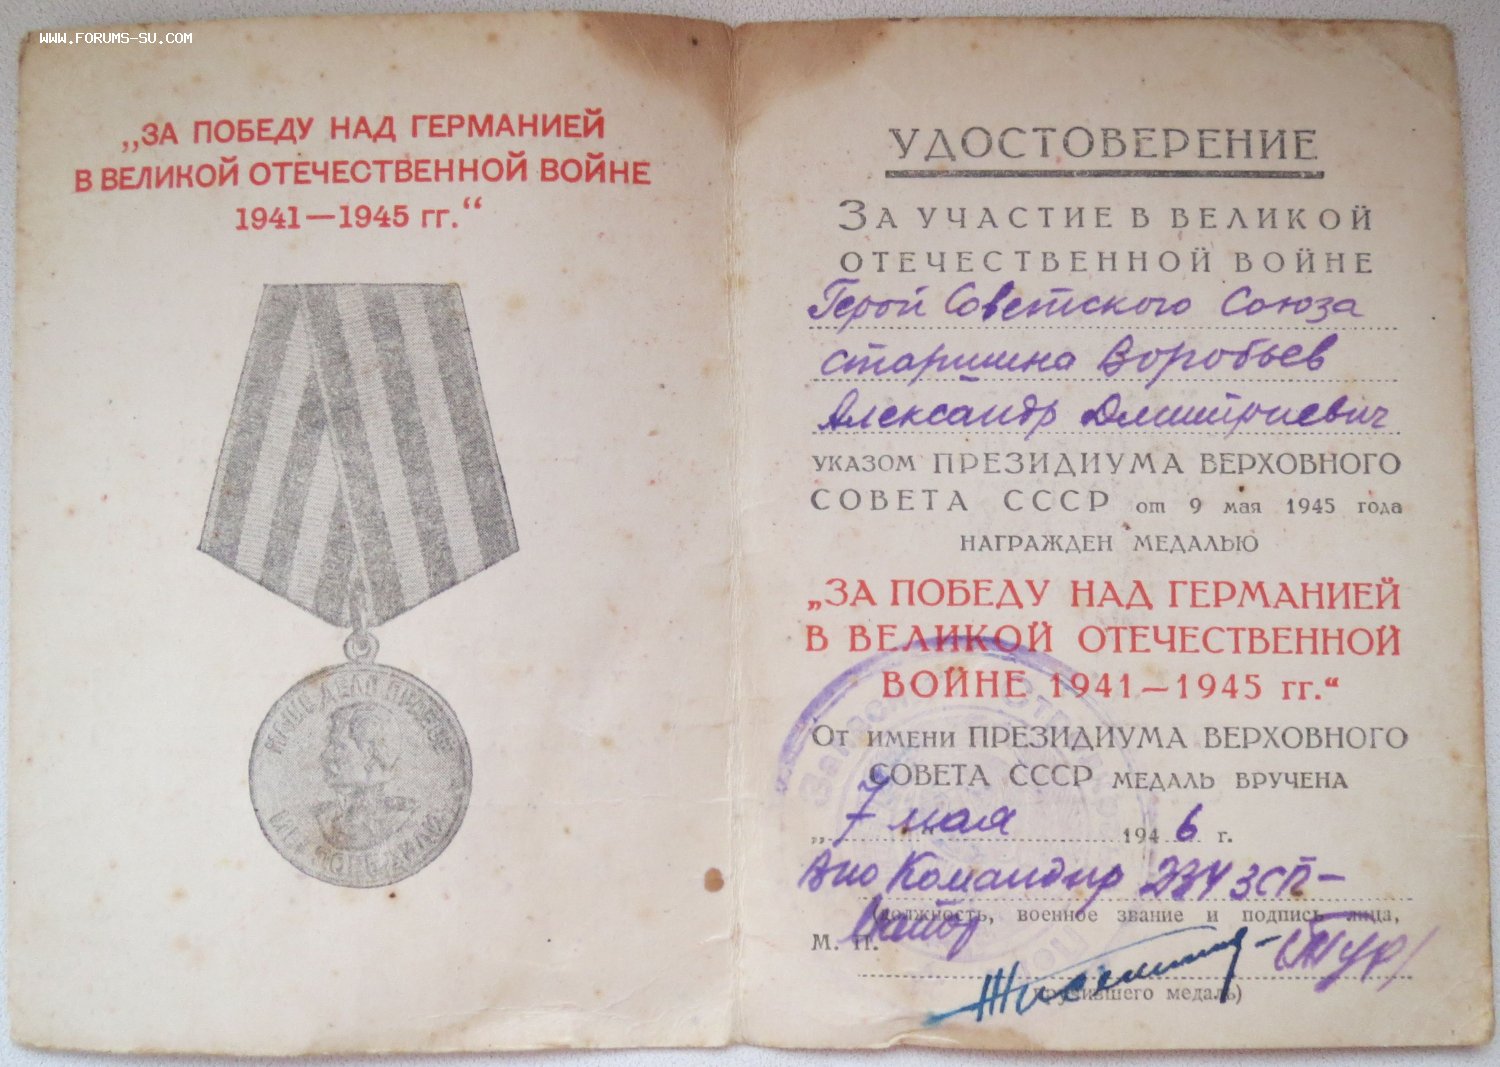 WWW.FORUMS-SU.COM
„ЗА ПОБЕДУ НАД ГЕРМАНИЕЙ
В ВЕЛИКОЙ ОТЕЧЕСТВЕННОЙ ВОЙНЕ
1941—1945 гг.“
НАШЕ ДЕЛО ПРАВОЕ
МЫ ПОБЕДИЛИ
УДОСТОВЕРЕНИЕ
ЗА УЧАСТИЕ В ВЕЛИКОЙ
ОТЕЧЕСТВЕННОЙ ВОЙНЕ
Герой Советского Союза
старшина Воробьев
Александр Дмитриевич
УКАЗОМ ПРЕЗИДИУМА ВЕРХОВНОГО
СОВЕТА СССР от 9 мая 1945 года
НАГРАЖДЕН МЕДАЛЬЮ
„ЗА ПОБЕДУ НАД ГЕРМАНИЕЙ
В ВЕЛИКОЙ ОТЕЧЕСТВЕННОЙ
ВОЙНЕ 1941—1945 гг.“
От имени ПРЕЗИДИУМА ВЕРХОВНОГО
СОВЕТА СССР МЕДАЛЬ ВРУЧЕНА
„7 мая 1946 г.
Врио Командир ЗСП-
(должность, военное звание и подпись лица,
М. П. Майор
вручившего медаль)